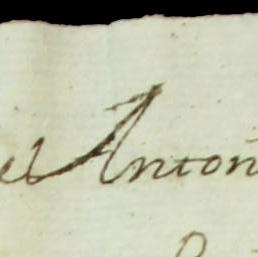 el Anton